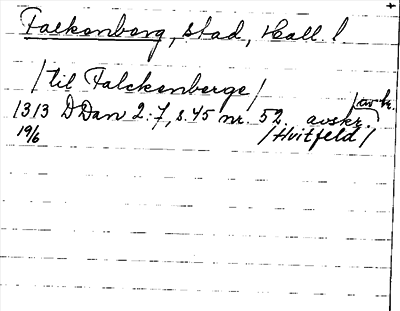 Falkenberg, stad, Hall. l
/til Falckenberge/
1313 DDan 2:7, s. 45 nr. 52. avskr.
19/6 /Hvitfeld/